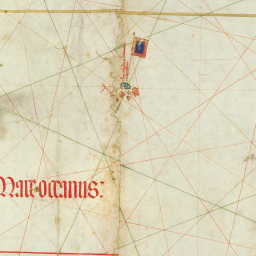 Mare occeanus: